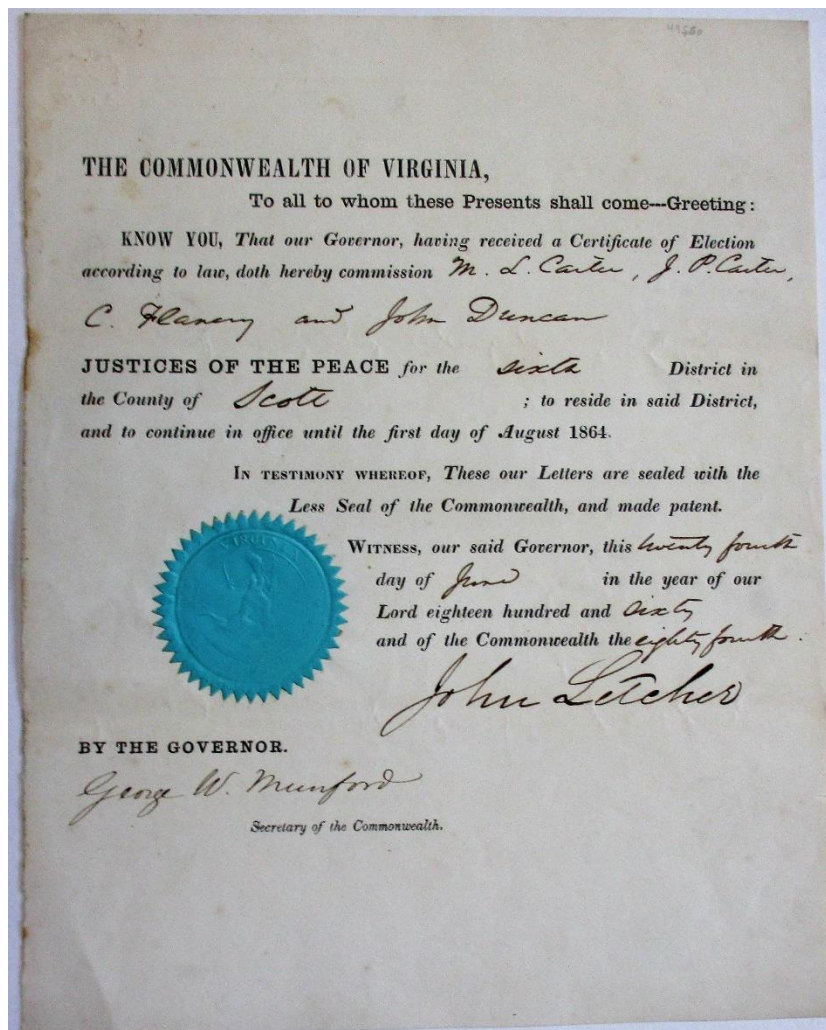 THE COMMONWEALTH OF VIRGINIA,
To all to whom these Presents shall come---Greeting:
KNOW YOU, That our Governor, having received a Certificate of Election
according to law, doth hereby commission M. L. Carter, J. P. Carter,
C. Flanery and John Duncan
JUSTICES OF THE PEACE for the sixth District in
the County of Scott ; to reside in said District,
and to continue in office until the first day of August 1864.
IN TESTIMONY WHEREOF, These our Letters are sealed with the
Less Seal of the Commonwealth, and made patent.
VIRGINIA
WITNESS, our said Governor, this twenty fourth
day of June in the year of our
Lord eighteen hundred and sixty
and of the Commonwealth the eighty fourth.
John Letcher
BY THE GOVERNOR.
George W. Munford
Secretary of the Commonwealth.